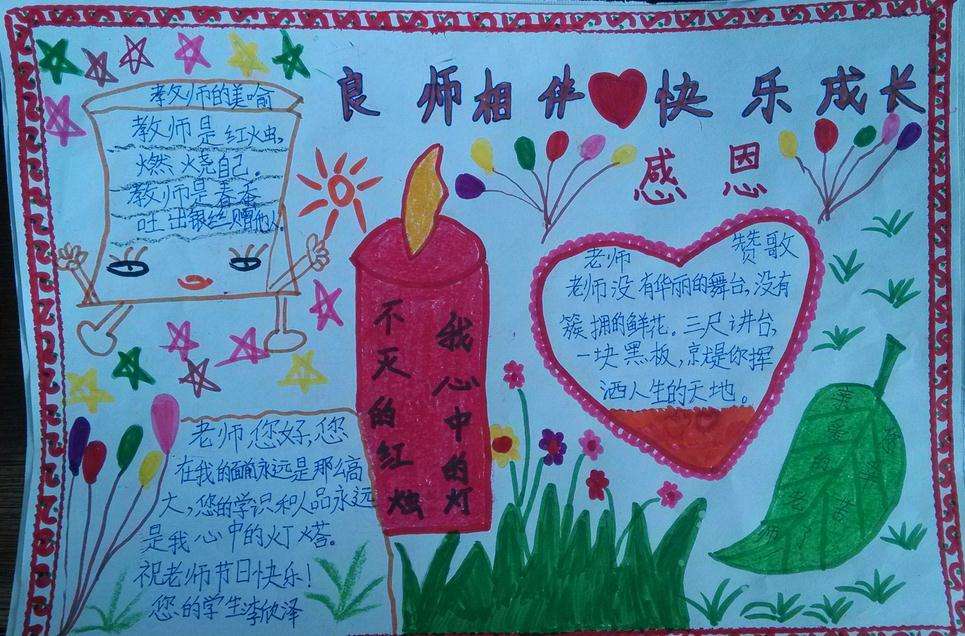 良师相伴 快乐成长
感恩
教师的美喻
教师是红火虫,
燃烧自己。
教师是春蚕
吐出银丝赠他人
不灭的红烛
我心中的灯
老师 赞歌
老师没有华丽的舞台,没有
簇拥的鲜花。三尺讲台,
一块黑板,就是你挥
洒人生的天地。
老师您好,您
在我的面前永远是那么高
大,您的学识和人品永远
是我心中的灯塔。
祝老师节日快乐!
您的学生李欣泽